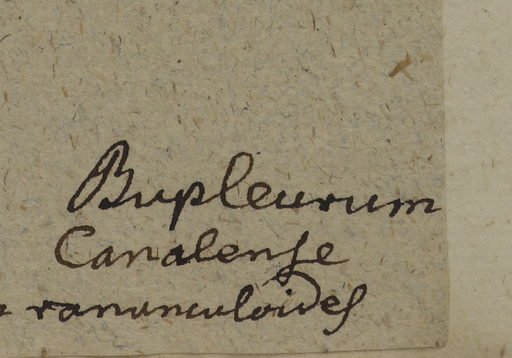 Bupleurum
Canalense
ranunculoides